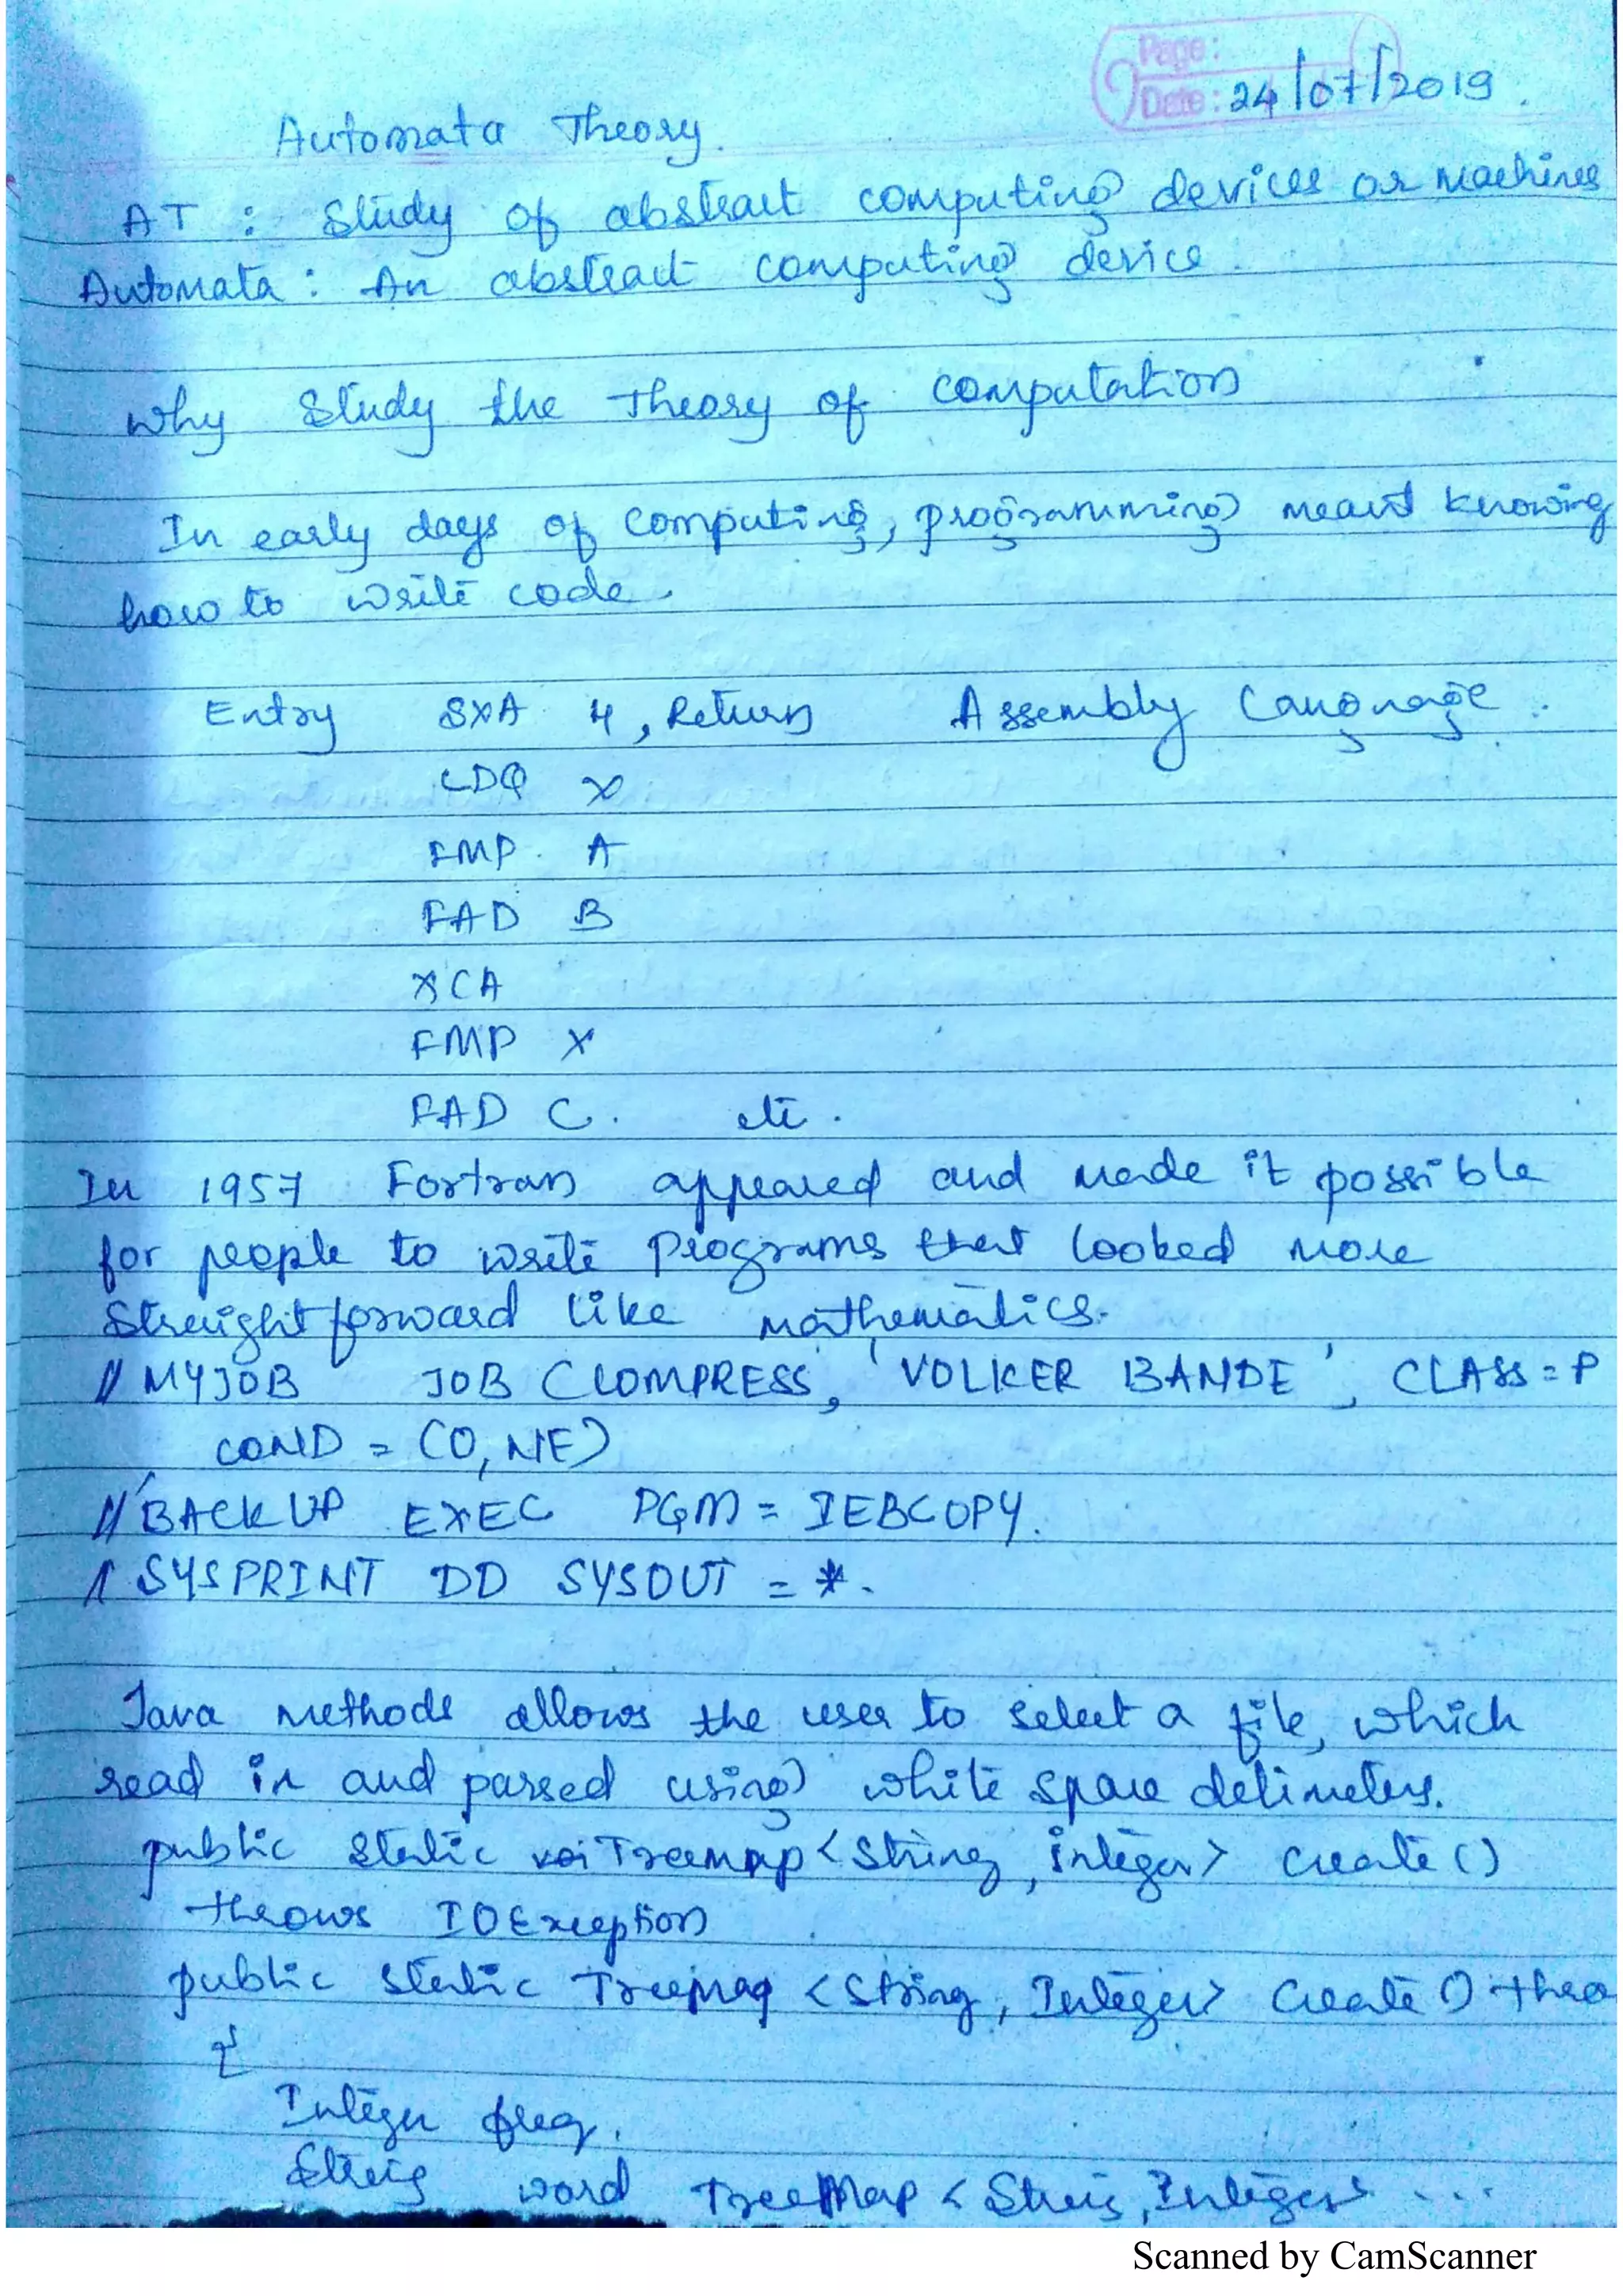 Page:
Date: 24/07/2019.
Automata Theory.
AT : Study of abstract computing devices or machines
Automata : An abstract computing device.
Why study the Theory of computation
In early days of computing, programming meant knowing
how to write code.
Entry SXA 4, Return Assembly Language.
LDQ X
FMP A
FAD B
XCA
FMP X
FAD C. etc.
In 1957 Fortran appeared and made it possible
for people to write programs that looked more
straight forward like mathematics.
// MYJOB JOB (COMPRESS, 'VOLKER BANDE', CLASS=P
COND = (0, NE)
// BACKUP EXEC PGM = IEBCOPY.
// SYSPRINT DD SYSOUT = *.
Java methods allows the user to select a file, which
read in and parsed using white space delimeters.
public static Treemap <String, integer> create ()
throws IOException
public static Treemap <String, Integer> Create () thro
{
Integer freq.
String word TreeMap < String, Integer> ...
Scanned by CamScanner